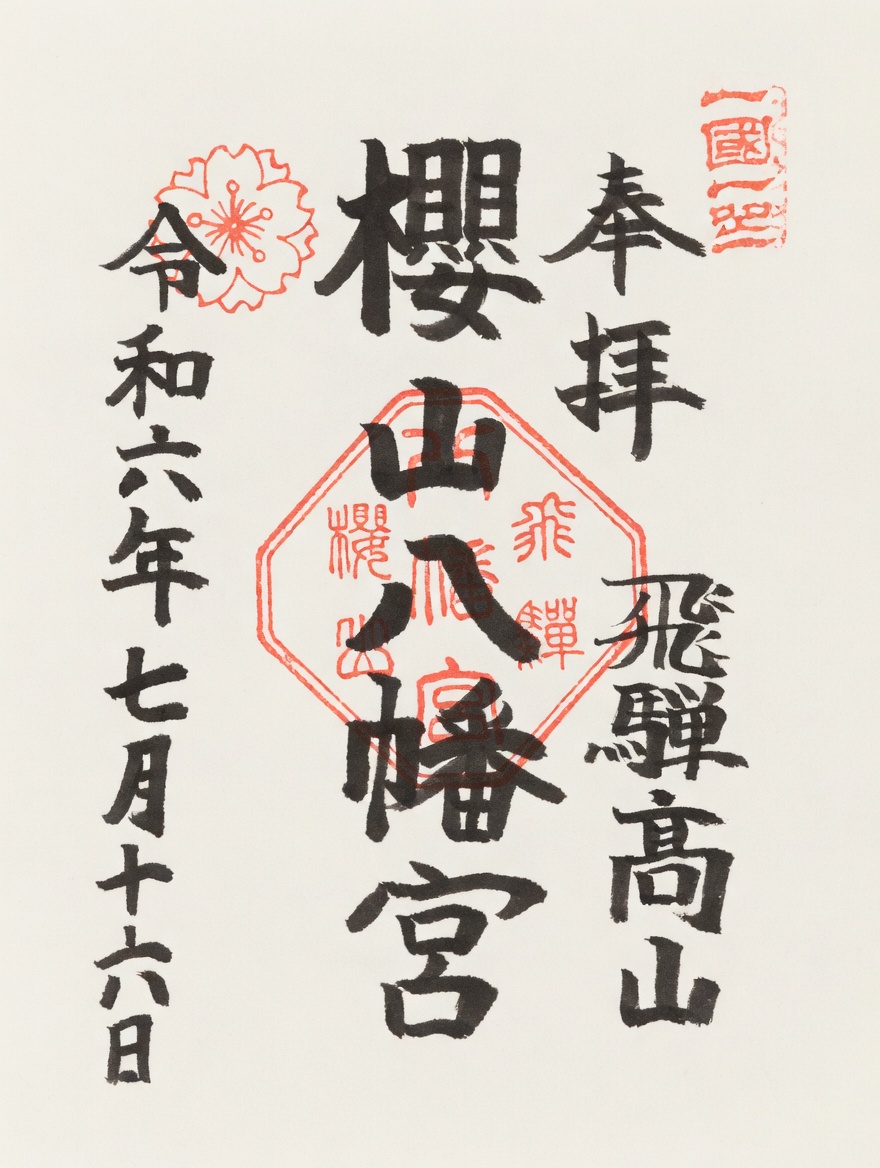 奉拝
飛騨髙山
櫻山八幡宮
令和六年七月十六日
飛驒
八幡宮
櫻山